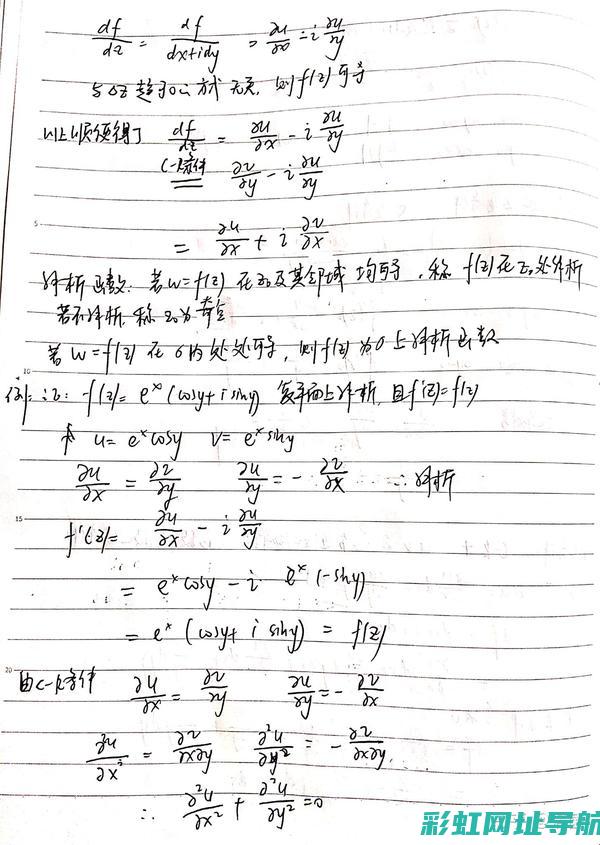 df/dz = df/(dx+idy) = ∂u/∂x - i ∂u/∂y
与Δz趋于0的方式无关, 则f(z)可导
以上顺便得了 df/dz = ∂u/∂x - i ∂u/∂y
C-R条件 ∂v/∂y - i ∂u/∂y
5
= ∂u/∂x + i ∂v/∂x
解析函数: 若w=f(z) 在z₀及其邻域 均可导, 称 f(z)在z₀处解析
若不解析, 称z₀为奇点
若 w=f(z) 在σ内处处可导, 则f(z)为σ上解析函数
10
例: 证: f(z)= eˣ(cosy+i siny) 复平面上解析, 且f'(z)=f(z)
u= eˣcosy v= eˣsiny
∂u/∂x = ∂v/∂y ∂u/∂y = - ∂v/∂x ∴解析
15
f'(z)= ∂u/∂x - i ∂u/∂y
= eˣcosy - i eˣ(-siny)
= eˣ(cosy+ i siny) = f(z)
20
由C-R条件 ∂u/∂x = ∂v/∂y ∂u/∂y = - ∂v/∂x
∂²u/∂x² = ∂²v/∂x∂y ∂²u/∂y² = - ∂²v/∂x∂y.
∴ ∂²u/∂x² + ∂²u/∂y² =0
彩虹网址导航